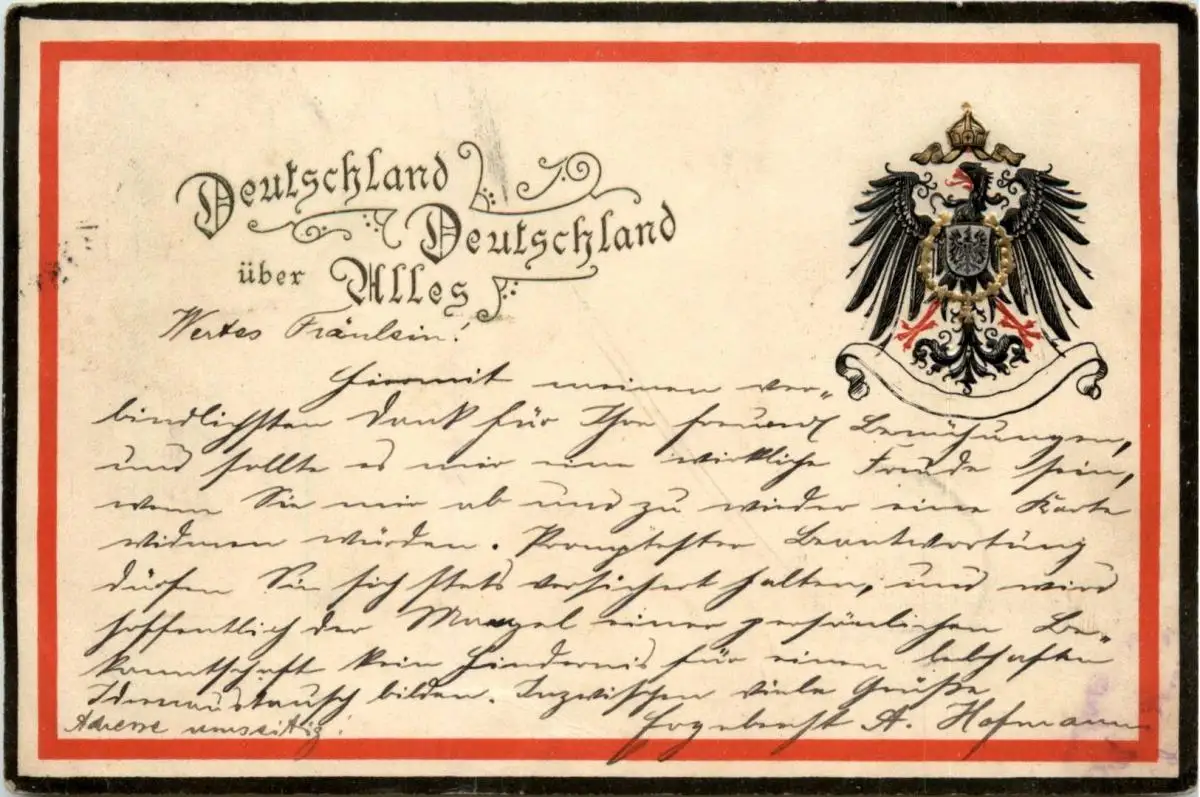 Deutschland
Deutschland
über Alles
Wertes Fräulein!
Hiermit meinen ver-
bindlichsten Dank für Ihre freundl Bemühungen,
und sollte es mir eine wirkliche Freude sein,
wenn Sie mir ab und zu wieder eine Karte
widmen würden. Promptester Beantwortung
dürfen Sie sich stets versichert halten, und wird
hoffentlich der Mangel einer persönlichen Be-
kanntschaft kein Hindernis für einen lebhaften
Ideenaustausch bilden. Inzwischen viele Grüße
Adresse umseitig!
Ergebenst A. Hofmann